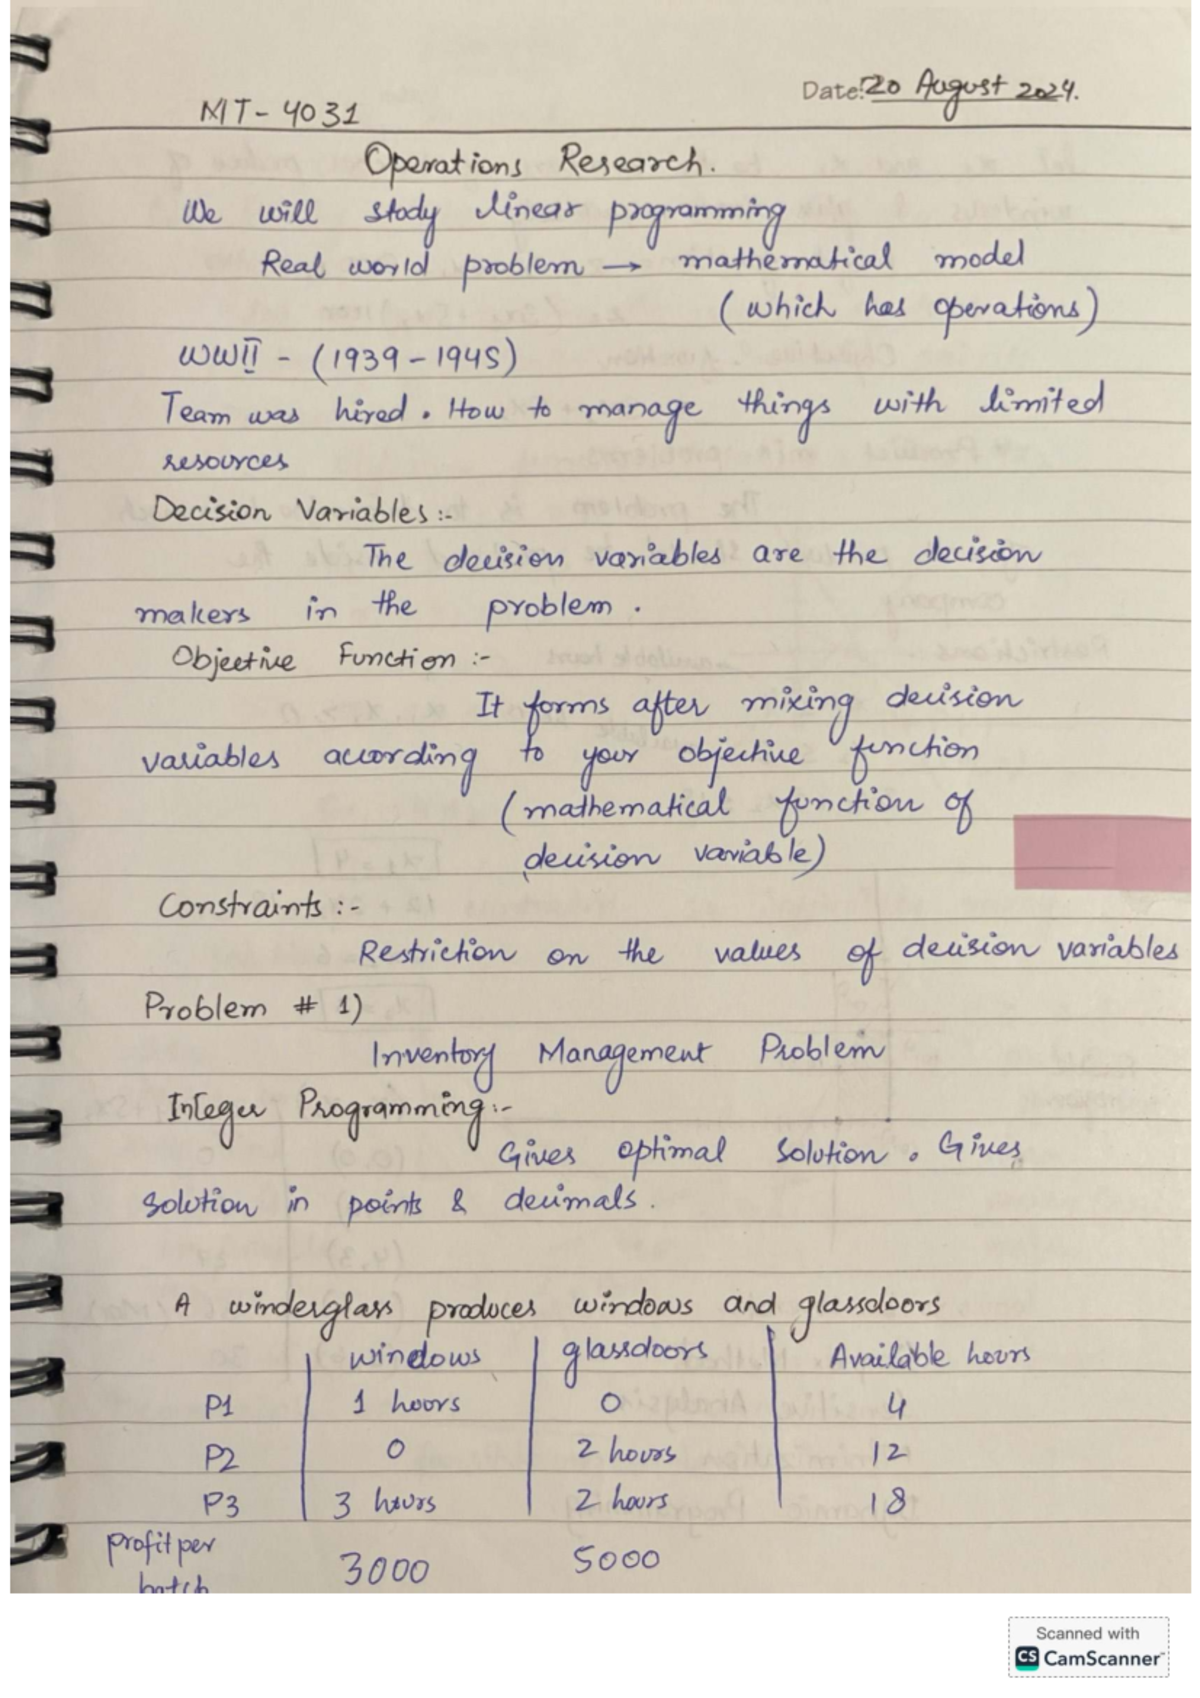 Date: 20 August 2024.
MT-4031
Operations Research.
We will study linear programming
Real world problem → mathematical model
(which has operations)
WWII - (1939-1945)
Team was hired. How to manage things with limited
resources
Decision Variables :-
The decision variables are the decision
makers in the problem.
Objective Function :-
It forms after mixing decision
variables according to your objective function
(mathematical function of
decision variable)
Constraints :-
Restriction on the values of decision variables
Problem # 1)
Inventory Management Problem
Integer Programming:-
Gives optimal solution. Gives
solution in points & decimals.
A winderglass produces windows and glassdoors
windows glassdoors Available hours
P1 1 hours 0 4
P2 0 2 hours 12
P3 3 hours 2 hours 18
profit per 3000 5000
batch
Scanned with
CS CamScanner